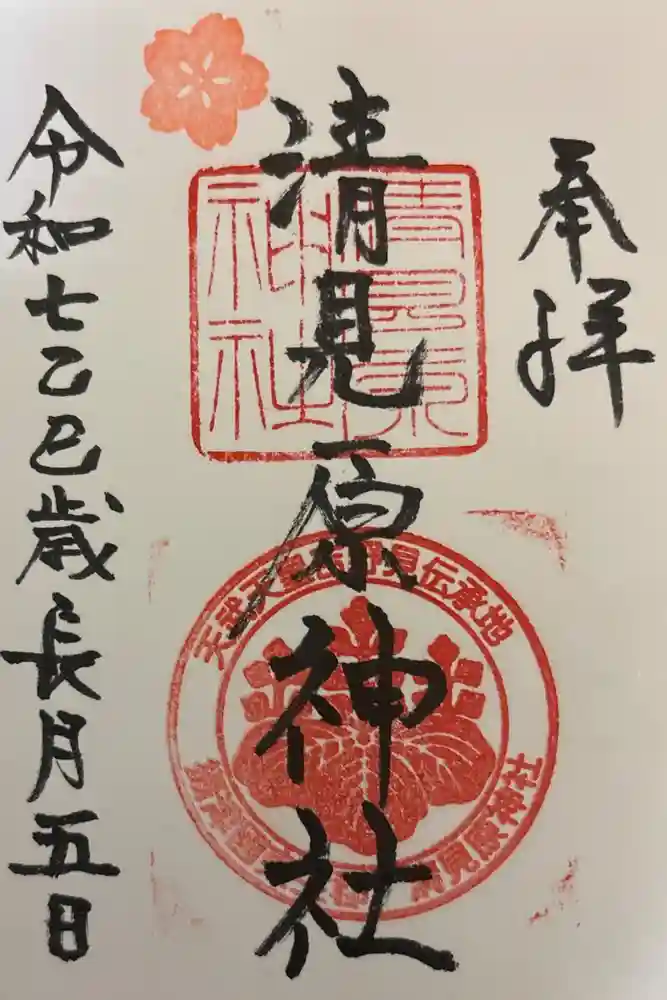 奉拝
清見原神社
清見原
神社
神社
令和七乙巳歳長月五日
天武天皇
見伝承地
清見原神社